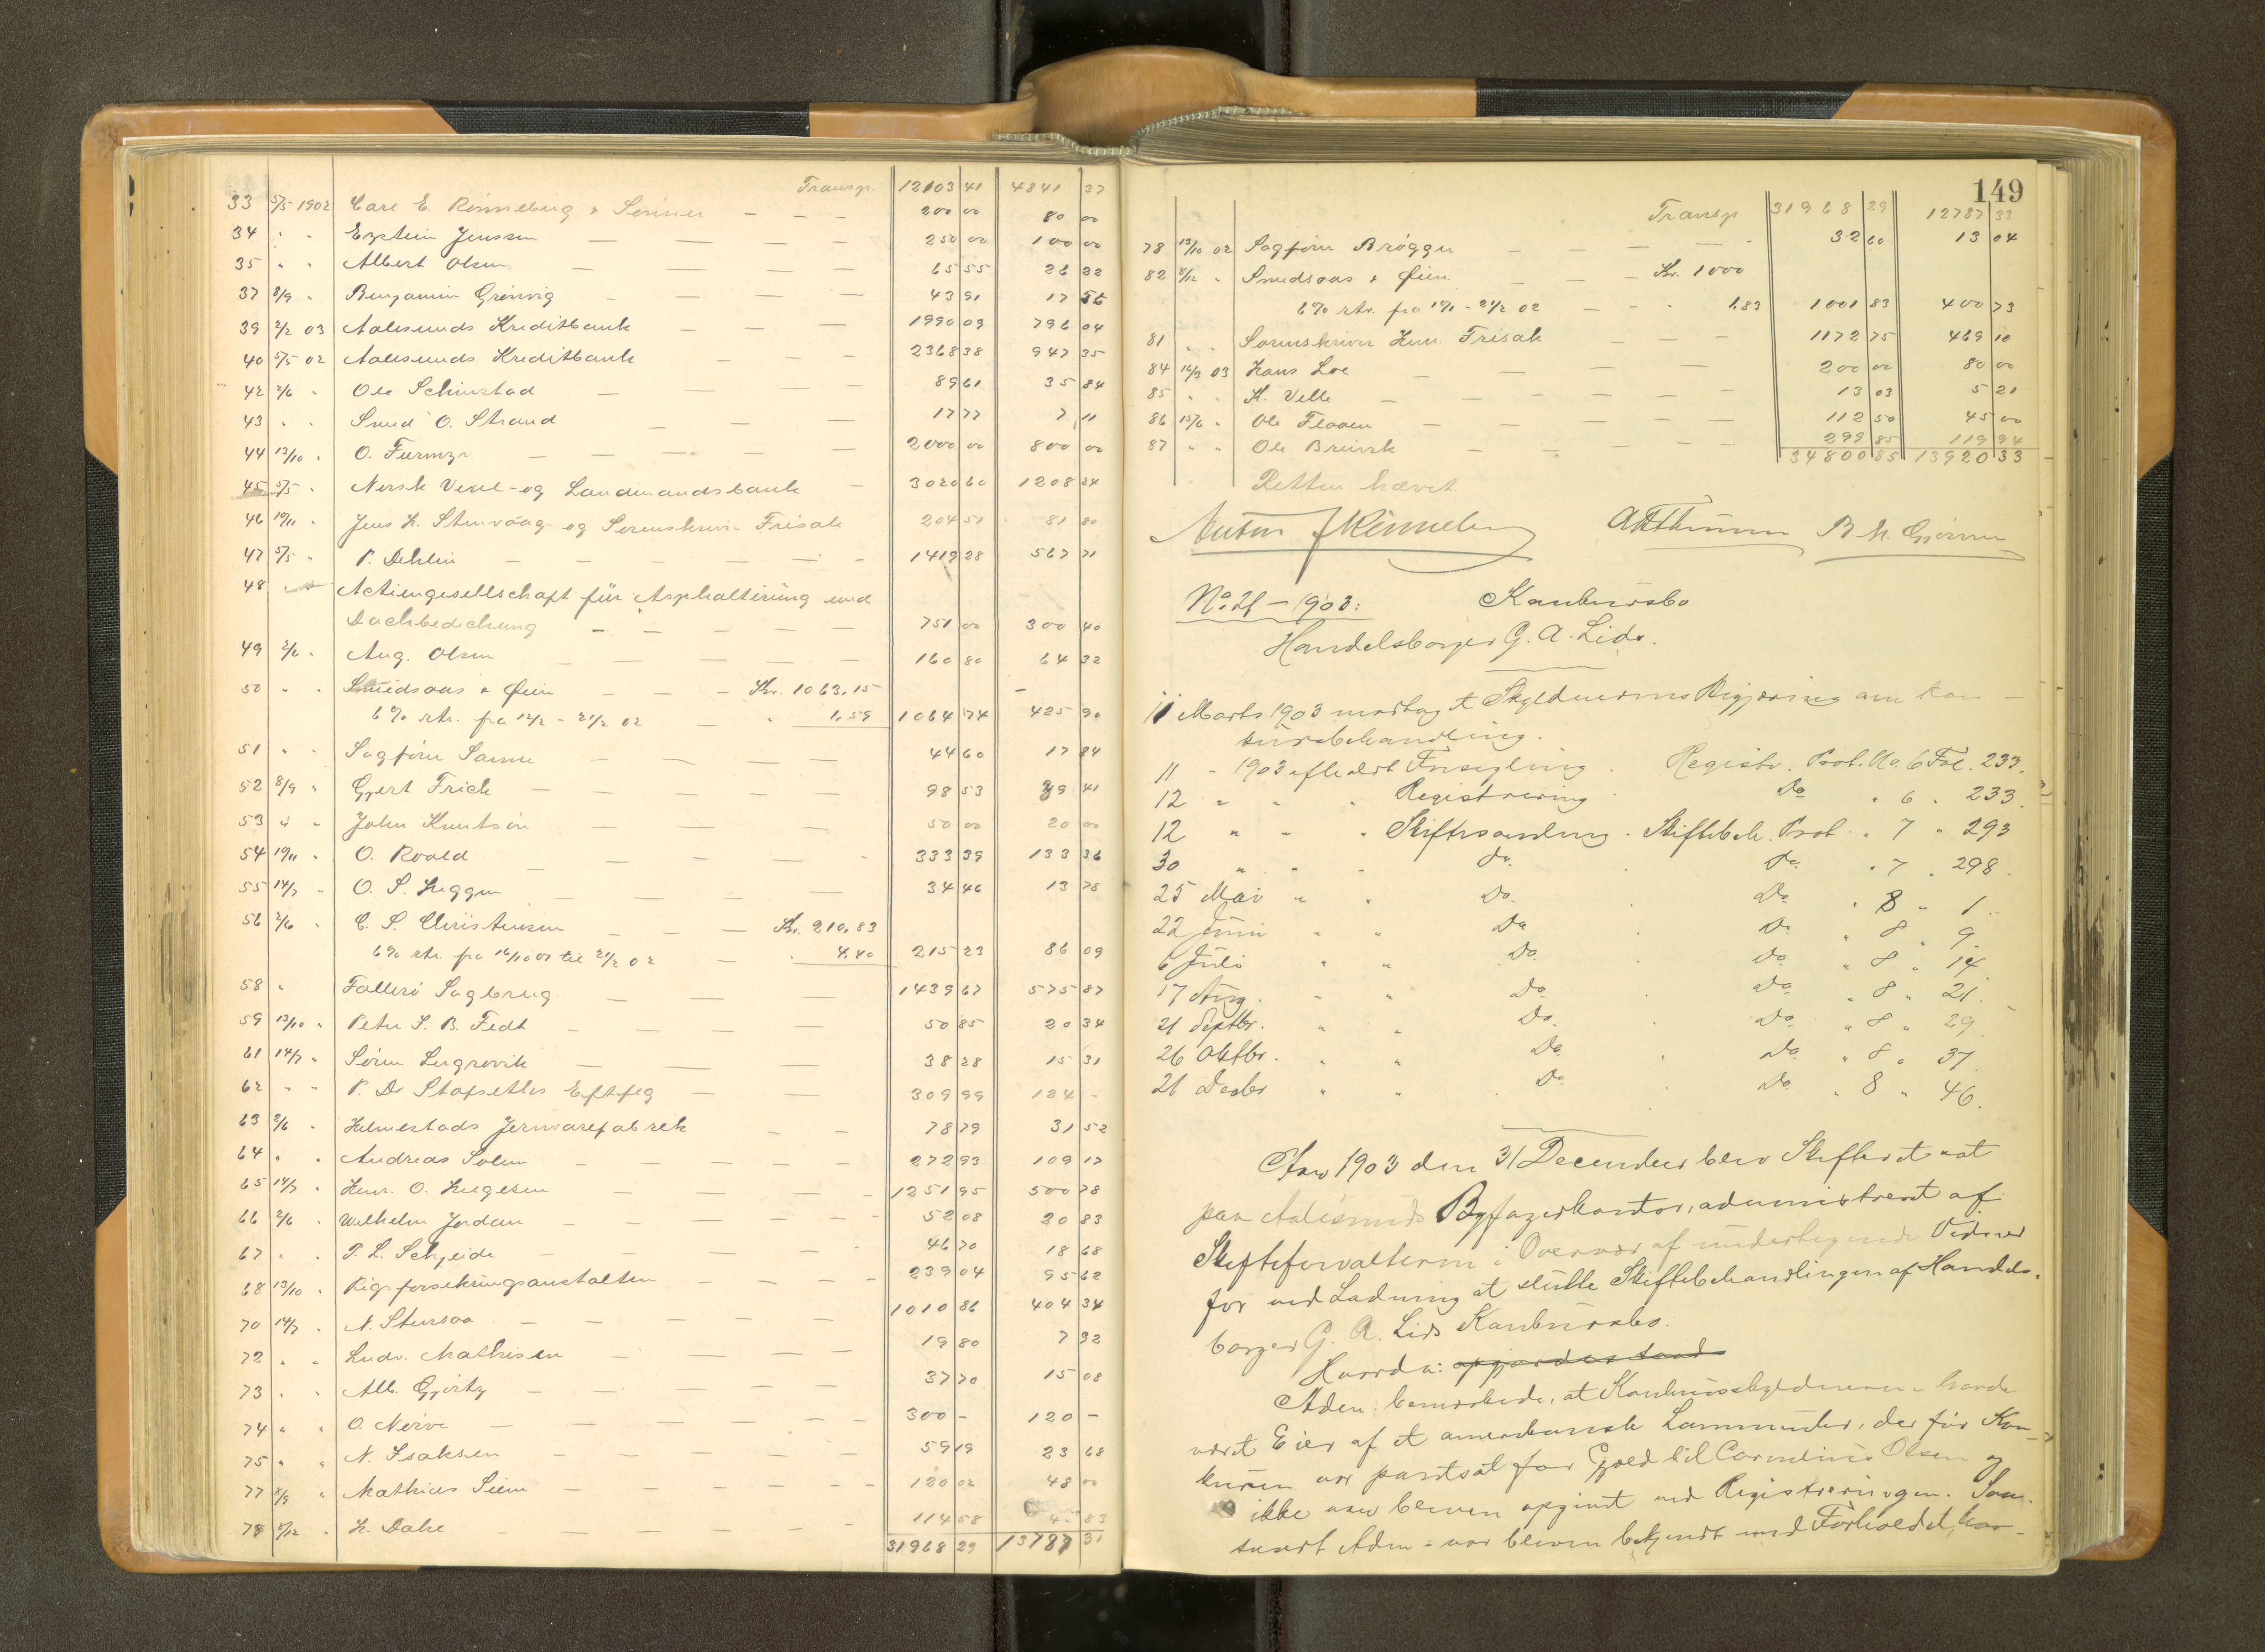 Transp. 12103 41 4841 37
33 5/5 1902 Carl E. Rönneberg & Sönner — — — 200 00 80 00
34 " " Eystein Jenssen — — — — 250 00 100 00
35 " " Albert Olsen — — — — 65 55 26 22
37 8/9 " Benjamin Grönvig — — — — 43 91 17 56
39 2/2 03 Aalesunds Kreditbank — — — 1990 09 796 04
40 5/5 02 Aalesunds Kreditbank — — — 2368 38 947 35
42 2/6 " Ole Schinstad — — 89 61 35 84
43 " " Smed O. Strand — — — 17 77 7 11
44 13/10 " O. Furmyr — — — — — 2000 00 800 00
45 5/5 " Norsk Vexel- og Landmandsbank — 3020 60 1208 24
46 19/11 " Jens K. Stenvaag og Sorenskriver Frisak 204 51 81 80
47 5/5 " P. Dehlin — — — — — — 1419 28 567 71
48 Actiengesellschaft für Asphaltirung und
Dachbedeckung — — — — — 751 00 300 40
49 2/6 " Aug. Olsen — — — — — 160 80 64 32
50 " " Smedsaas & Øien — — — Kr. 1063,15 —
6% rtr. fra 12/2 - 21/2 02 — " 1,59 1064 74 425 90
51 " " Sagförer Sanne — — — — 44 60 17 84
52 8/9 " Gjert Frick — — — — — 98 53 39 41
53 " " John Knutsen — — — — 50 00 20 00
54 19/11 " O. Roald — — — — 333 39 133 36
55 14/7 " O. S. Heggen — — — — 34 46 13 78
56 2/6 " C. S. Christensen — — — Kr. 210,83
6% rtr. fra 16/10 01 til 21/2 02 — " 4,40 215 23 86 09
58 " Fallerö Sagbrug — — — 1439 67 575 87
59 13/10 " Peter S. B. Fedt — — — — 50 85 20 34
61 14/7 " Sören Lugrovik — — — 38 28 15 31
62 " " P. Dr Stafsethes Eftflg — — 309 99 124 -
63 2/6 " Holmestads Jernvarefabrik — — 78 79 31 52
64 " " Andreas Solem — — — — 272 93 109 17
65 14/7 " Henr. O. Hugesen — — — — 1251 95 500 78
66 2/6 " Wilhelm Jordan — — — — — 52 08 20 83
67 " " P. L. Schjeide — — — — 46 70 18 68
68 13/10 " Rigsforsikringsanstalten — — — — 239 04 95 62
70 14/7 " N. Stensaa — — — — — 1010 86 404 34
72 " " Ludv. Mathisen — — — — 19 80 7 92
73 " " Alb. Gjörtz — — — — — 37 70 15 08
74 " " O. Nörve — — — — — 300 - 120 -
75 " " N. Isaksen — — — — 59 19 23 68
77 8/9 " Mathias Siem — — — — 120 02 48 00
78 8/12 " K. Dahe — — — — 114 58 83
31968 29 13787 31
149
Transp. 31968 29 12787 33
78 13/10 02 Sagförer Brögger — — — — 32 60 13 04
82 8/12 " Smedsaas & Øien — — — Kr. 1000
6% rtr. fra - 21/2 02 — " 1,83 1001 83 400 73
81 " " Sorenskriver Henr. Frisak — — — 1172 75 469 10
84 16/3 03 Hans Loe — — — — — 200 00 80 00
85 " " K. Velle — — — — — — 13 03 5 21
86 15/6 " Ole Flaaen — — — — — 112 50 45 00
87 " " Ole Breivik — — — — — 299 85 119 94
34800 85 13920 33
Retten hævet
Anton J Rönneberg
No. 21 - 1903: Konkursbo
Handelsborger G. A. Lids.
11 Marts 1903 modtaget Skyldnerens Begjæring om kon-
kursbehandling.
11 - 1903 afholdt Forsegling. Registr. Prot. No. 6 Fol. 233.
12 " " " Registrering Do " 6 " 233.
12 " " " Skiftesamling. Skiftebeh. Prot. " 7 " 293
30 " " " Do. Do. " 7 " 298.
25 Mai " " Do. Do " 8 " 1.
22 Juni " " Do Do " 8 " 9.
6 Juli " " Do. Do " 8 " 14.
17 Aug. " " Do Do " 8 " 21.
21 Septbr. " " Do. Do " 8 " 29.
26 Oktbr. " " Do Do " 8 " 37.
21 Decbr " " Do Do " 8 " 46.
Aar 1903 den 31 December blev Skifteret sat
paa Aalesunds Byfogedkontor, administreret af
Skifteforvalteren i Overvær af undertegnede Vidner
for ved Ladning at slutte Skiftebehandlingen af Handels-
borger G. A. Lids Konkursbo.
Hvorda: opgjordes tand
Adm. bemerkede, at Konkursskyldneren havde
været Eier af et amerikansk Lammeuhr, der før Kon-
kursen var pantsat for Gjæld til Cornelius Olsen og
ikke var bleven opgivet ved Registreringen. Saa-
snart Adm. var bleven bekjendt med Forholdet, hav-